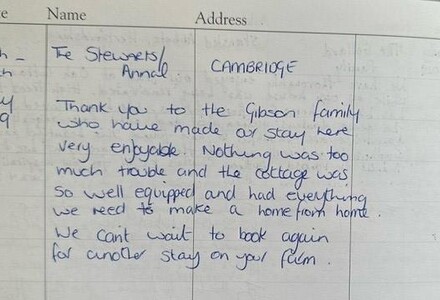 Name Address
The Stewarts/
Annal CAMBRIDGE
Thank you to the Gibson family
who have made our stay here
very enjoyable. Nothing was too
much trouble and the cottage was
so well equipped and had everything
we need to make a home from home.
We can't wait to book again
for another stay on your farm.